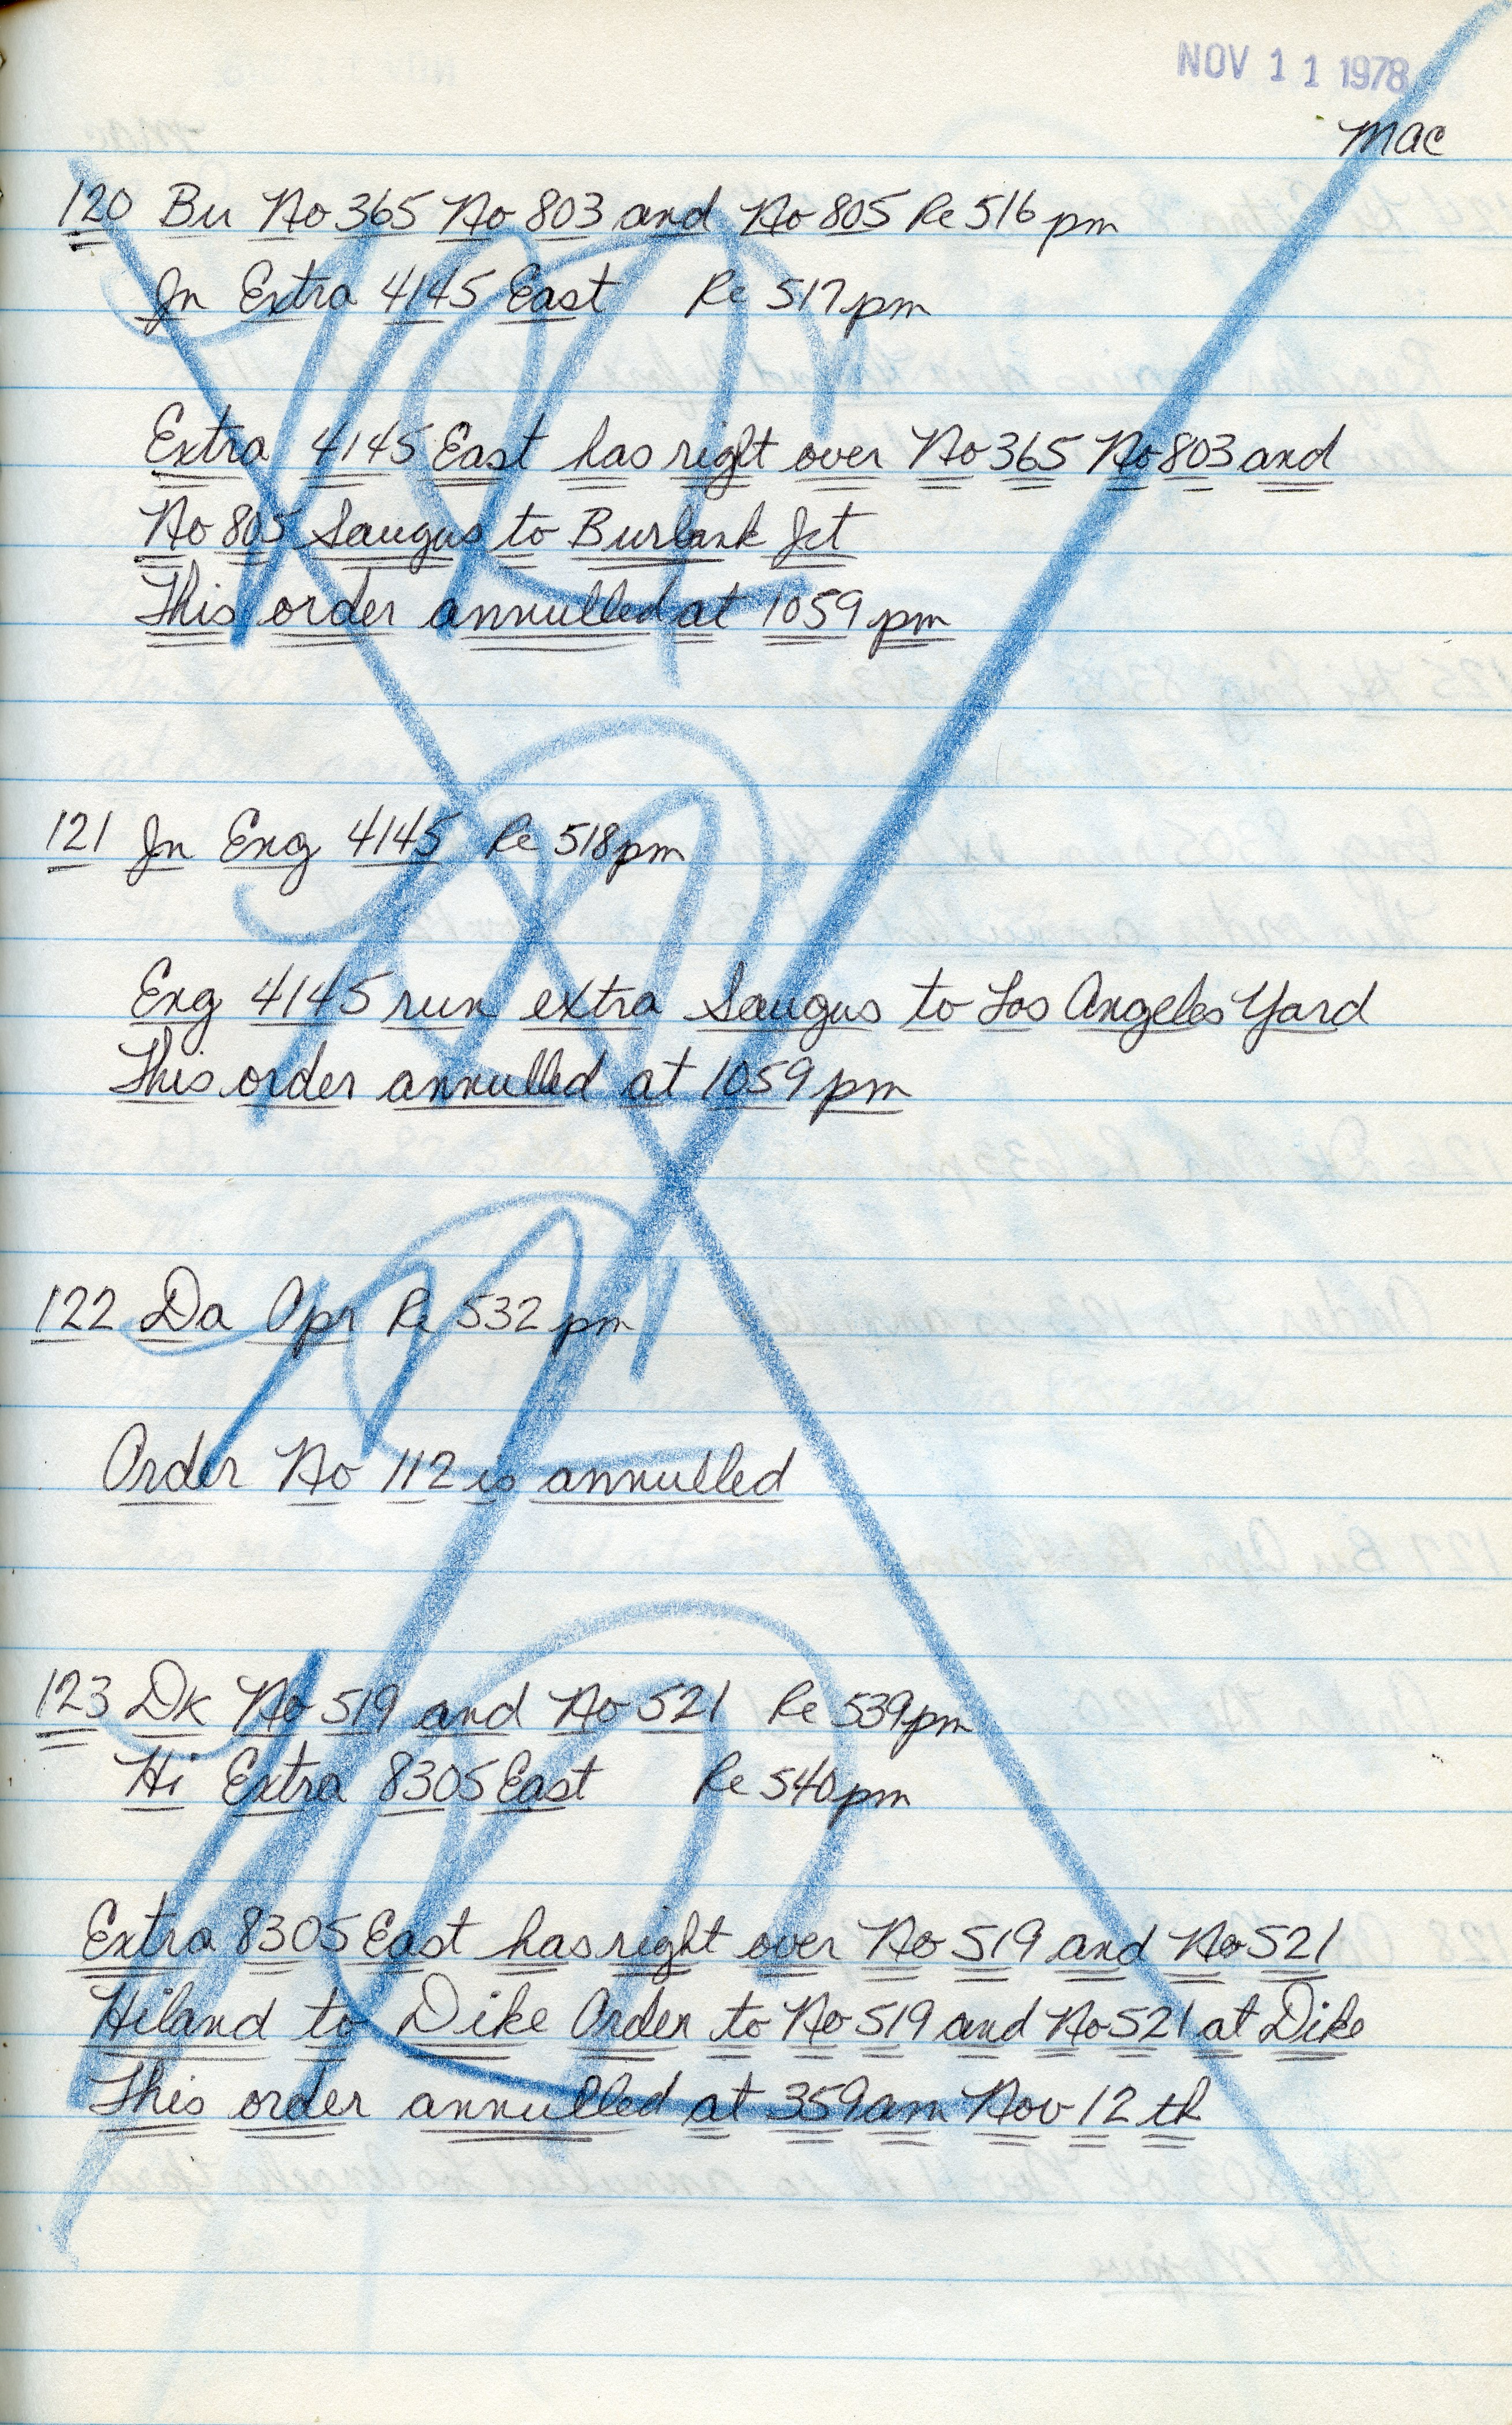 NOV 11 1978
Mac
120 Bu No 365 No 803 and No 805 Re 516 pm
Jn Extra 4145 East Re 517 pm
Extra 4145 East has right over No 365 No 803 and
No 805 Saugus to Burbank Jct
This order annulled at 1059 pm
121 Jn Eng 4145 Re 518 pm
Eng 4145 run extra Saugus to Los Angeles Yard
This order annulled at 1059 pm
122 Da Opr Re 532 pm
Order No 112 is annulled
123 Dk No 519 and No 521 Re 539 pm
Hi Extra 8305 East Re 540 pm
Extra 8305 East has right over No 519 and No 521
Hiland to Dike Order to No 519 and No 521 at Dike
This order annulled at 359 am Nov 12 th